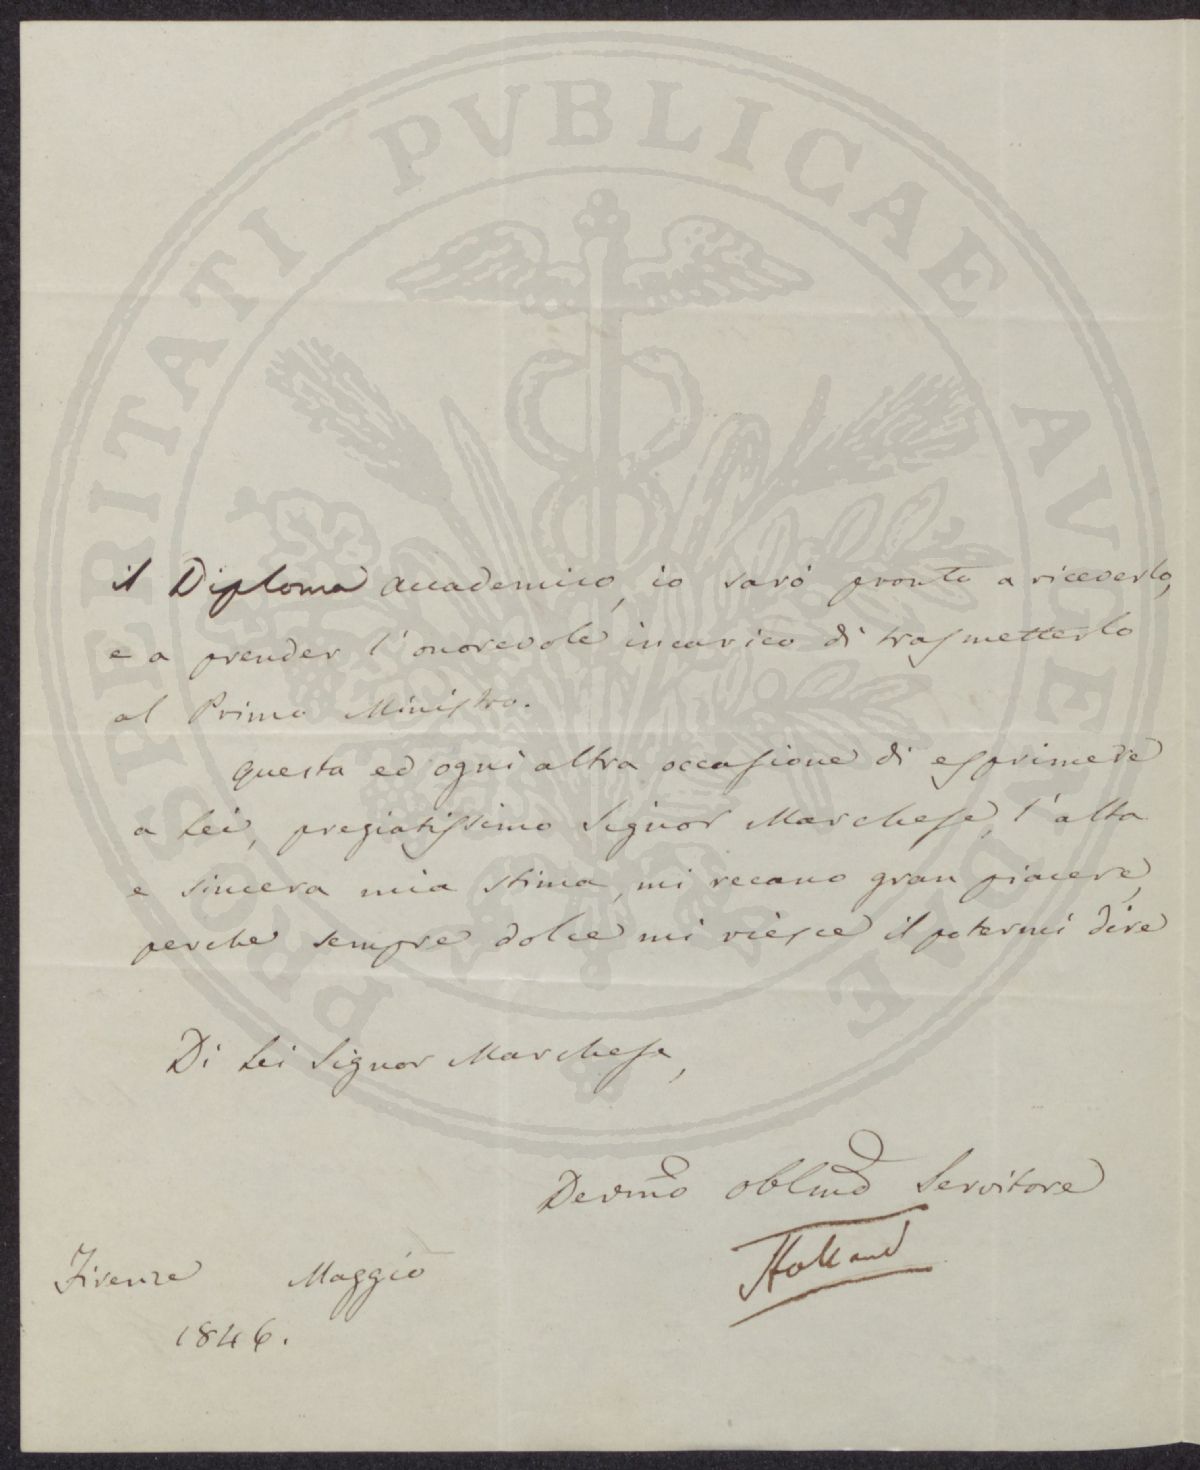 PROSPERITATI PVBLICAE AVGENDAE
il Diploma accademico, io sarò pronto a riceverlo,
e a prender l'onorevole incarico di trasmetterlo
al Primo Ministro.
Questa ed ogni altra occasione di esprimere
a Lei, pregiatissimo Signor Marchese, l'alta
e sincera mia stima, mi recano gran piacere,
perche sempre dolce mi riesce il potermi dire
Di Lei Signor Marchese,
Devmo oblmo Servitore
Holland
Firenze Maggio
1846.